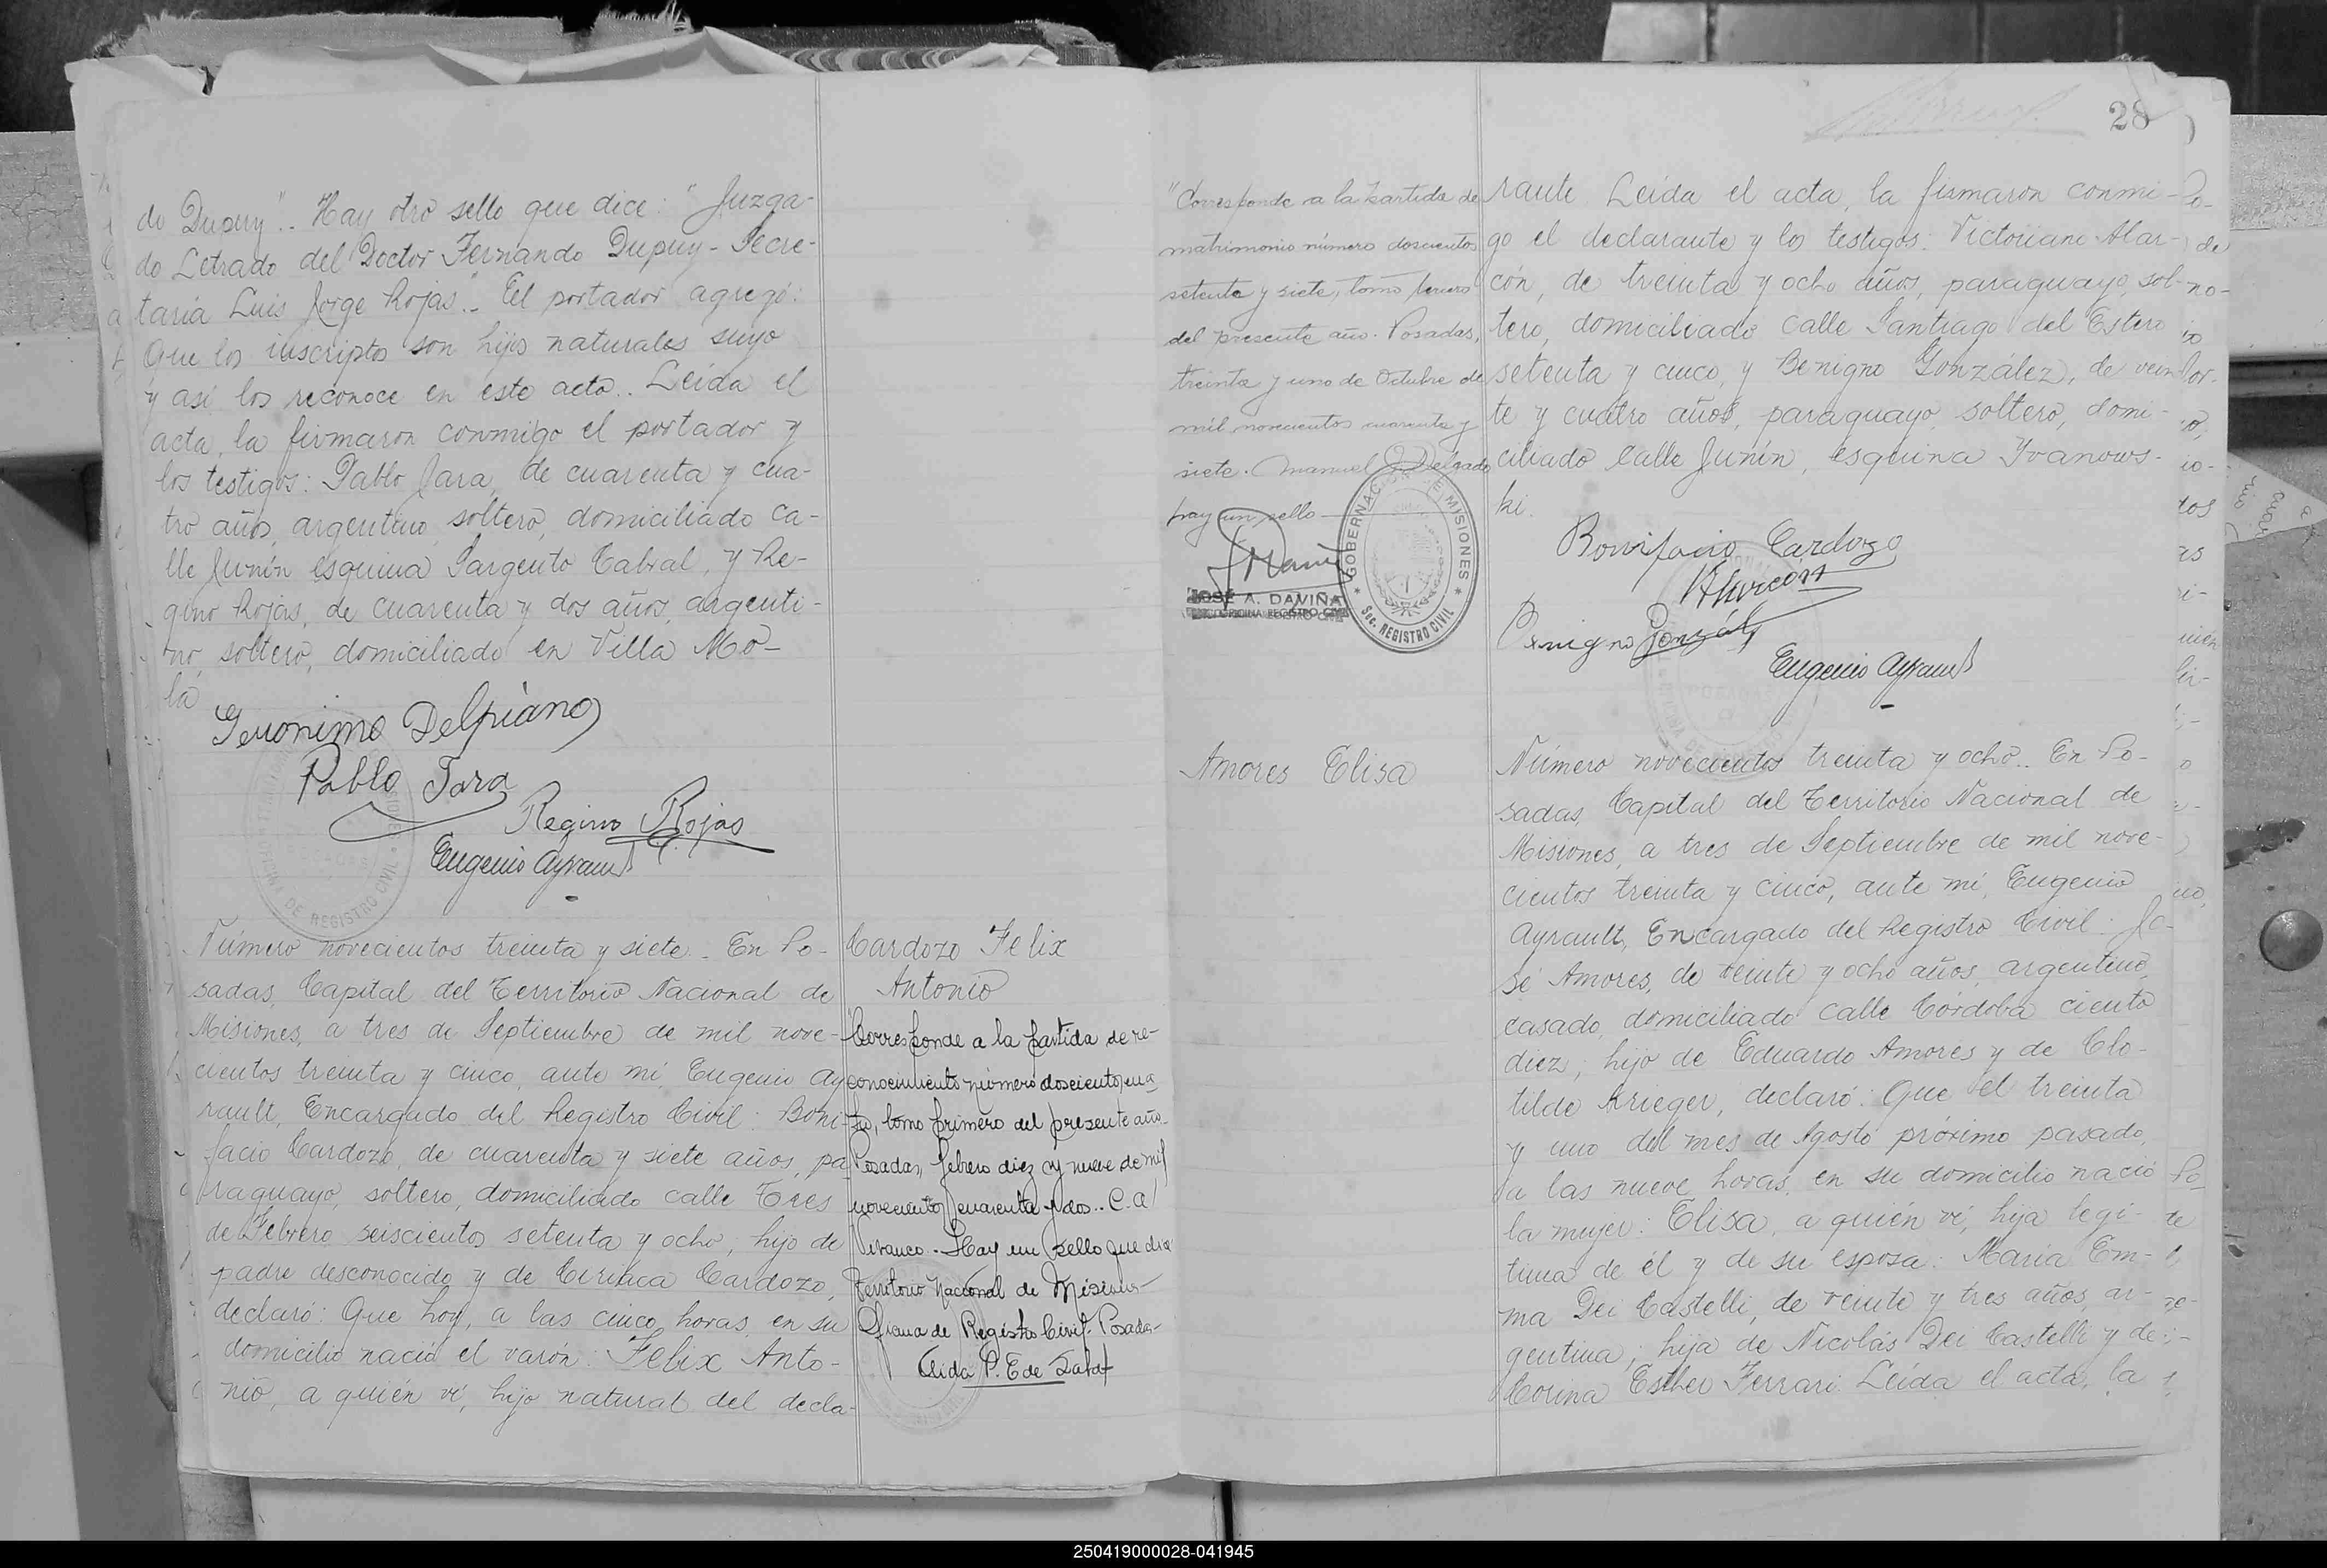 do Dupuy".. Hay otro sello que dice: "Juzga-
do Letrado del Doctor Fernando Dupuy - Secre-
taría Luis Jorge Rojas".. El portador agregó:
Que los inscriptos son hijos naturales suyo
y así los reconoce en este acto.. Leída el
acta, la firmaron conmigo el portador y
los testigos: Pablo Jara, de cuarenta y cua-
tro años, argentino, soltero, domiciliado ca-
lle Junín esquina Sargento Cabral, y Re-
gino Rojas, de cuarenta y dos años, argenti-
no, soltero, domiciliado en Villa Mo-
la
Geronimo Delpiano
Pablo Jara
Regino Rojas
Eugenio Ayrault
OFICINA DE REGISTRO CIVIL
Número novecientos treinta y siete.. En Po-
sadas, Capital del Territorio Nacional de
Misiones, a tres de Septiembre de mil nove-
cientos treinta y cinco, ante mí, Eugenio Ay
rault, Encargado del Registro Civil: Boni-
facio Cardozo, de cuarenta y siete años, pa
raguayo, soltero, domiciliado calle Tres
de Febrero seiscientos setenta y ocho, hijo de
padre desconocido y de Ciriaca Cardozo,
declaró: Que hoy, a las cinco horas, en su
domicilio nació el varón: Felix Anto-
nio, a quién ví, hijo natural del decla-
Cardozo Felix
Antonio
Corresponde a la partida de re-
conocimiento número doscientos cua
tro, tomo primero del presente año.
Posadas, febrero diez y nueve de mil
novecientos cuarenta y dos.. C. A.
Vivanco.- Hay un sello que dice
Territorio Nacional de Misiones-
Oficina de Registro Civil. Posadas-
Aida P. E de Salaf
28
"Corresponde a la partida de
matrimonio número doscientos
setenta y siete, tomo tercero
del presente año. Posadas,
treinta y uno de Octubre de
mil novecientos cuarenta y
siete. Manuel J. Delgado
hay un sello
GOBERNACION DE MISIONES
Sec. REGISTRO CIVIL
JOSÉ A. DAVIÑA
rante. Leída el acta, la firmaron conmi-
go el declarante y los testigos: Victoriano Alar-
cón, de treinta y ocho años, paraguayo, sol-
tero, domiciliado calle Santiago del Estero
setenta y cinco, y Benigno González, de vein
te y cuatro años, paraguayo, soltero, domi-
ciliado calle Junín, esquina Yvanows-
ki.
Bonifacio Cardozo
VAlarcón
Benigno González
Eugenio Ayrault
Amores Elisa
Número novecientos treinta y ocho.. En Po-
sadas, Capital del Territorio Nacional de
Misiones, a tres de Septiembre de mil nove-
cientos treinta y cinco, ante mí, Eugenio
Ayrault, Encargado del Registro Civil: Jo-
sé Amores, de veinte y ocho años, argentino,
casado, domiciliado calle Córdoba ciento
diez, hijo de Eduardo Amores y de Clo-
tilde Krieger, declaró: Que el treinta
y uno del mes de Agosto próximo pasado,
a las nueve horas, en su domicilio nació
la mujer: Elisa, a quién ví, hija legí-
tima de él y de su esposa: María Em-
ma Dei Castelli, de veinte y tres años, ar-
gentina, hija de Nicolás Dei Castelli y de
Corina Esther Ferrari. Leída el acta, la
250419000028-041945